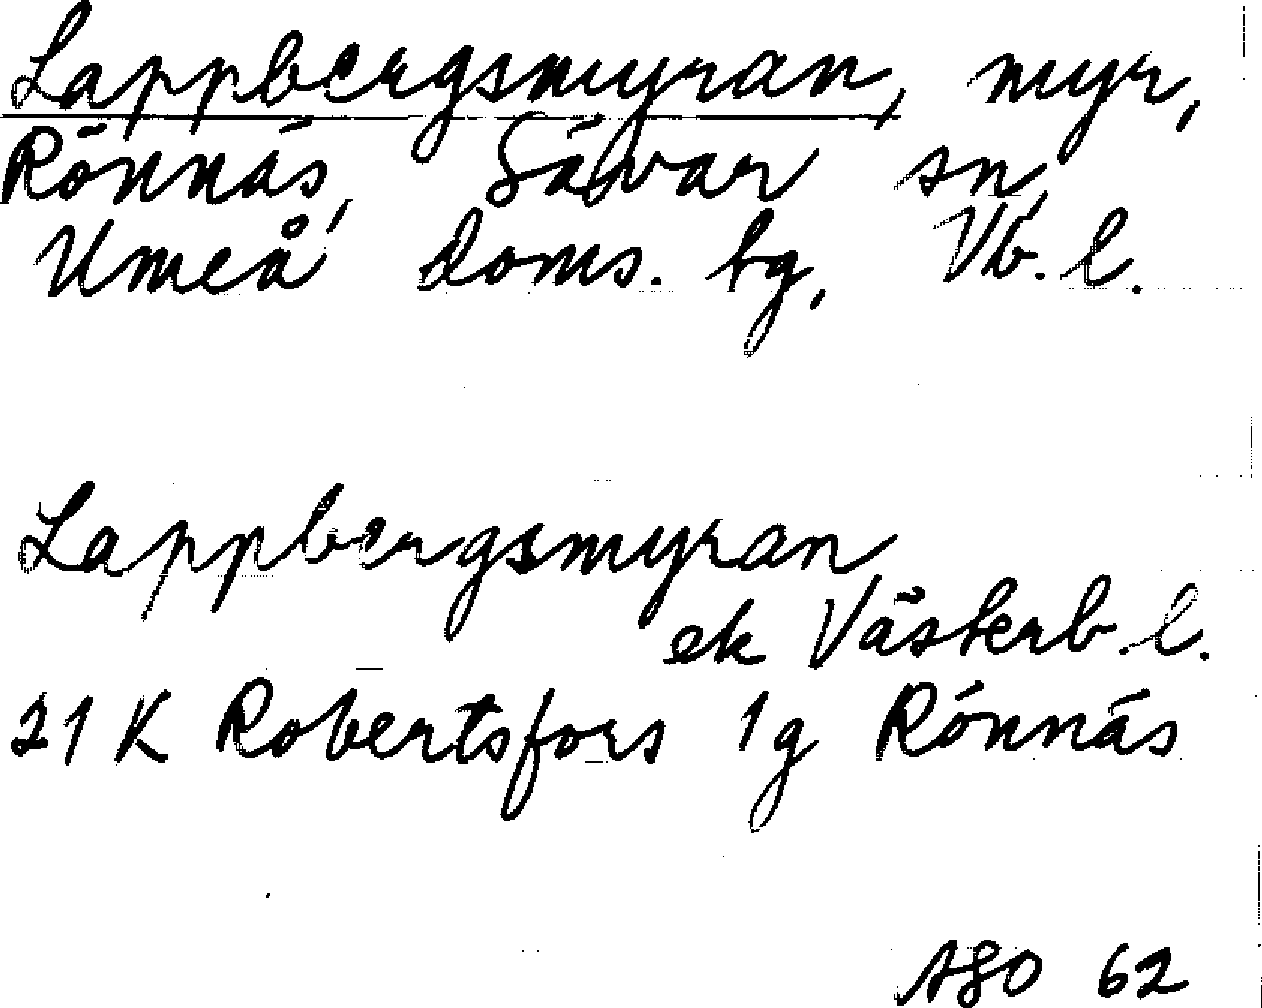 Lappbergsmyran, myr,
Rönnäs, Sävar sn,
Umeå doms. tg, Vb. l.
Lappbergsmyran
ek Västerb. l.
21 K Robertsfors 1g Rönnäs
ASO 62